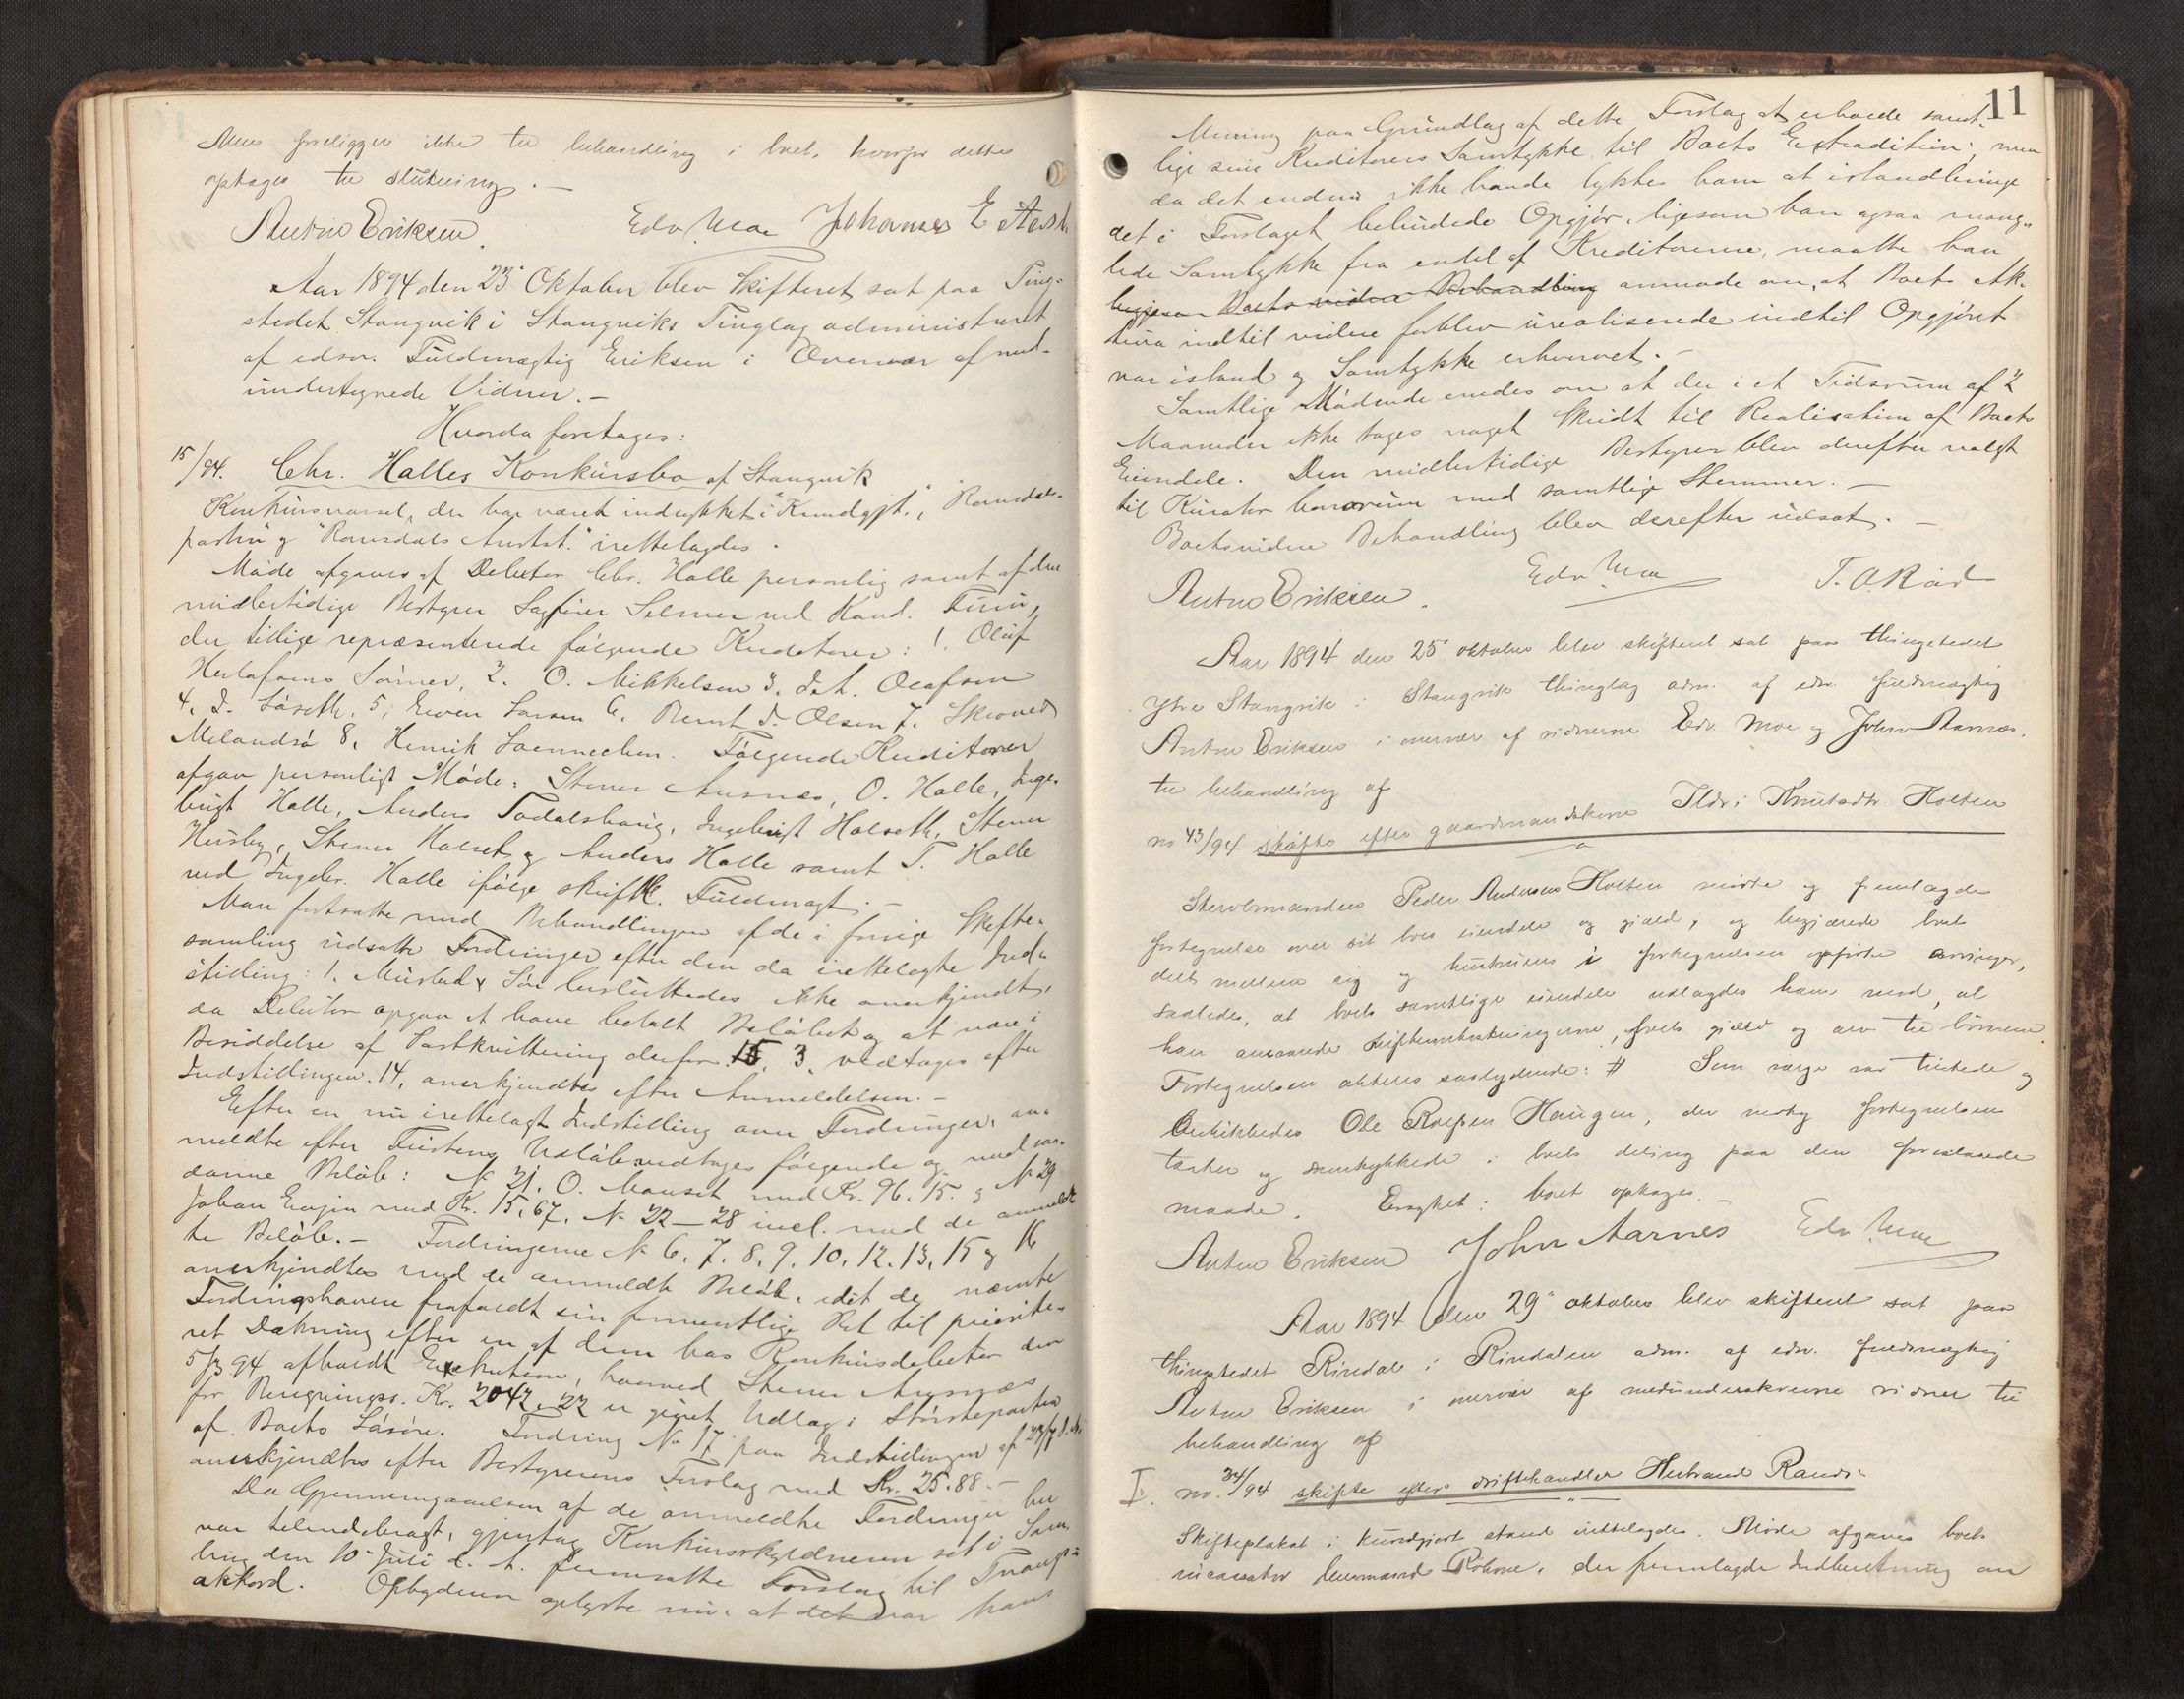 Mere foreligger ikke til behandling i boet, hvorfor dettes
optages til slutning. —
Anton Eriksen. Edv Moe Johannes E
Aar 1894 den 23 Oktober blev Skifteret sat paa Ting-
stedet Stangvik i Stangviks Tinglag administreret
af edsv. Fuldmægtig Eriksen i Overvær af med-
undertegnede Vidner. —
Hvorda foretages:
15/94. Chr. Halles Konkursbo af Stangvik
Konkursvarsel, der har været indrykket i "Kundgjt.", "Romsdals-
posten" og "Romsdals Amtst." irettelagdes.
Møde afgaves af Debitor Chr. Halle personlig samt af den
midlertidige Bestyrer Sagfører Selmer ved Kand.
der tillige repræsenterede følgende Kreditorer: 1. Oluf
Herlofsens Sønner, 2. O. Mikkelsen 3. Olafsen
4. Løseth, 5, Ewen Larsen 6. Bernt J. Olsen 7.
8, Henrik Loennechen. Følgende Kreditorer
afgav personligt Møde: Stener Ausnæs, O. Halle, Inge-
brigt Halle, Anders Todalshaug, Ingebrigt Halseth, Stener
Husby, Stener Halset og Anders Halle samt T. Halle
ved Ingebr. Halle ifølge skriftl. Fuldmagt. —
Man fortsatte med Behandlingen af de i forrige Skifte-
samling udsatte Fordringer efter den da irettelagte Ind-
stilling: 1. Mustad & Søn besluttedes ikke anerkjendt,
da Debitor opgav at have betalt Beløbet og at være i
Besiddelse af Postkvittering derfor. 3, vedtages efter
Indstillingen. 14, anerkjendtes efter Anmeldelsen. —
Efter en nu irettelagt Indstilling over Fordringer, an-
meldte efter Fristens Udløb vedtages følgende og med saa-
danne Beløb: No 21. O. Mauset med Kr. 96. 15. og No 29
Johan Engin med Kr. 15,67. No 22—28 incl. med de anmeld-
te Beløb. — Fordringerne No 6. 7. 8. 9. 10. 12. 13. 15 og 16
anerkjendtes med de anmeldte Beløb, idet de nævnte
Fordringshavere frafaldt sin formentlige Ret til priorite-
ret Dækning efter en af dem hos Konkursdebitor den
5/3 94 afholdt Exekution, hvorved Stener Ausnæs
for Beregningss. Kr. 2042,22 er gjort Udlæg i Størsteparten
af Boets Løsøre. Fordring No 17 paa Indstillingen af
anerkjendtes efter Bestyrerens Forslag med Kr. 25.88. —
Da Gjennemgaaelsen af de anmeldte Fordringer her
var tilendebragt, gjentog Konkursskyldneren sit i Sam-
ling den 10 Juli d. A. fremsatte Forslag til Tvangs-
akkord. Opbyderen oplyste nu, at det var hans
11
Mening paa Grundlag af dette Forslag at erholde samt-
lige sine Kreditorers Samtykke til Boets Extradition; men
da det endnu ikke havde lykkes ham at istandbringe
det i Forslaget bebudede Opgjør, ligesom han ogsaa mang-
lede Samtykke fra endel af Kreditorerne, maatte han
begjære Boets videre Behandling anmode om, at Boets Ak-
tiva indtil videre forblev urealiserede indtil Opgjøret
var istand og Samtykke erhvervet. —
Samtlige Mødende enedes om at der i et Tidsrum af 2
Maaneder ikke tages noget Skridt til Realisation af Boets
Eiendele. Den midlertidige Bestyrer blev derefter valgt
til Kurator bonorum med samtlige Stemmer. —
Boets videre Behandling blev derefter udsat. —
Anton Eriksen. Edv Moe T. O. Rød
Aar 1894 den 25 oktober blev skifteret sat paa thingstedet
ytre Stangvik i Stangvik thinglag adm. af edsv. fuldmægtig
Anton Eriksen i overvær af vidnerne Edv. Moe og John Aarnæs.
til behandling af
no 43/94 skifte efter gaardmandskone Ildri Knutsdtr. Holten
Stervbomanden Peder Andersen Holten mødte og fremlagde
fortegnelse over sit boes eiendele og gjæld, og begjærede boet
delt mellem sig og hustruens i fortegnelsen opførte arvinger,
saaledes, at boets samtlige eiendele udlagdes ham mod, at
han ansvarede skifteomkostningerne, boets gjæld og arv til børnene.
Fortegnelsen aktens saalydende: # Som værge var tilstede og
Ole Rolfsen Haugen, der vedtog fortegnelsen
og samtykkede i boets deling paa den foreslaaede
maade. Eragtet: boet optages. —
Anton Eriksen John Aarnes Edv Moe
Aar 1894 den 29 oktober blev skifteret sat paa
thingstedet Rindal i Rindalen adm. af edsv. fuldmægtig
Anton Eriksen i overvær af medunderskrevne vidner til
behandling af
I. no. 34/94 skifte efter driftehandler Halvard Rands-
Skifteplakat i kundgjort stand irettelagdes. Møde afgaves boets
incassator lensmand Röhme, der fremlagde Indberetning om